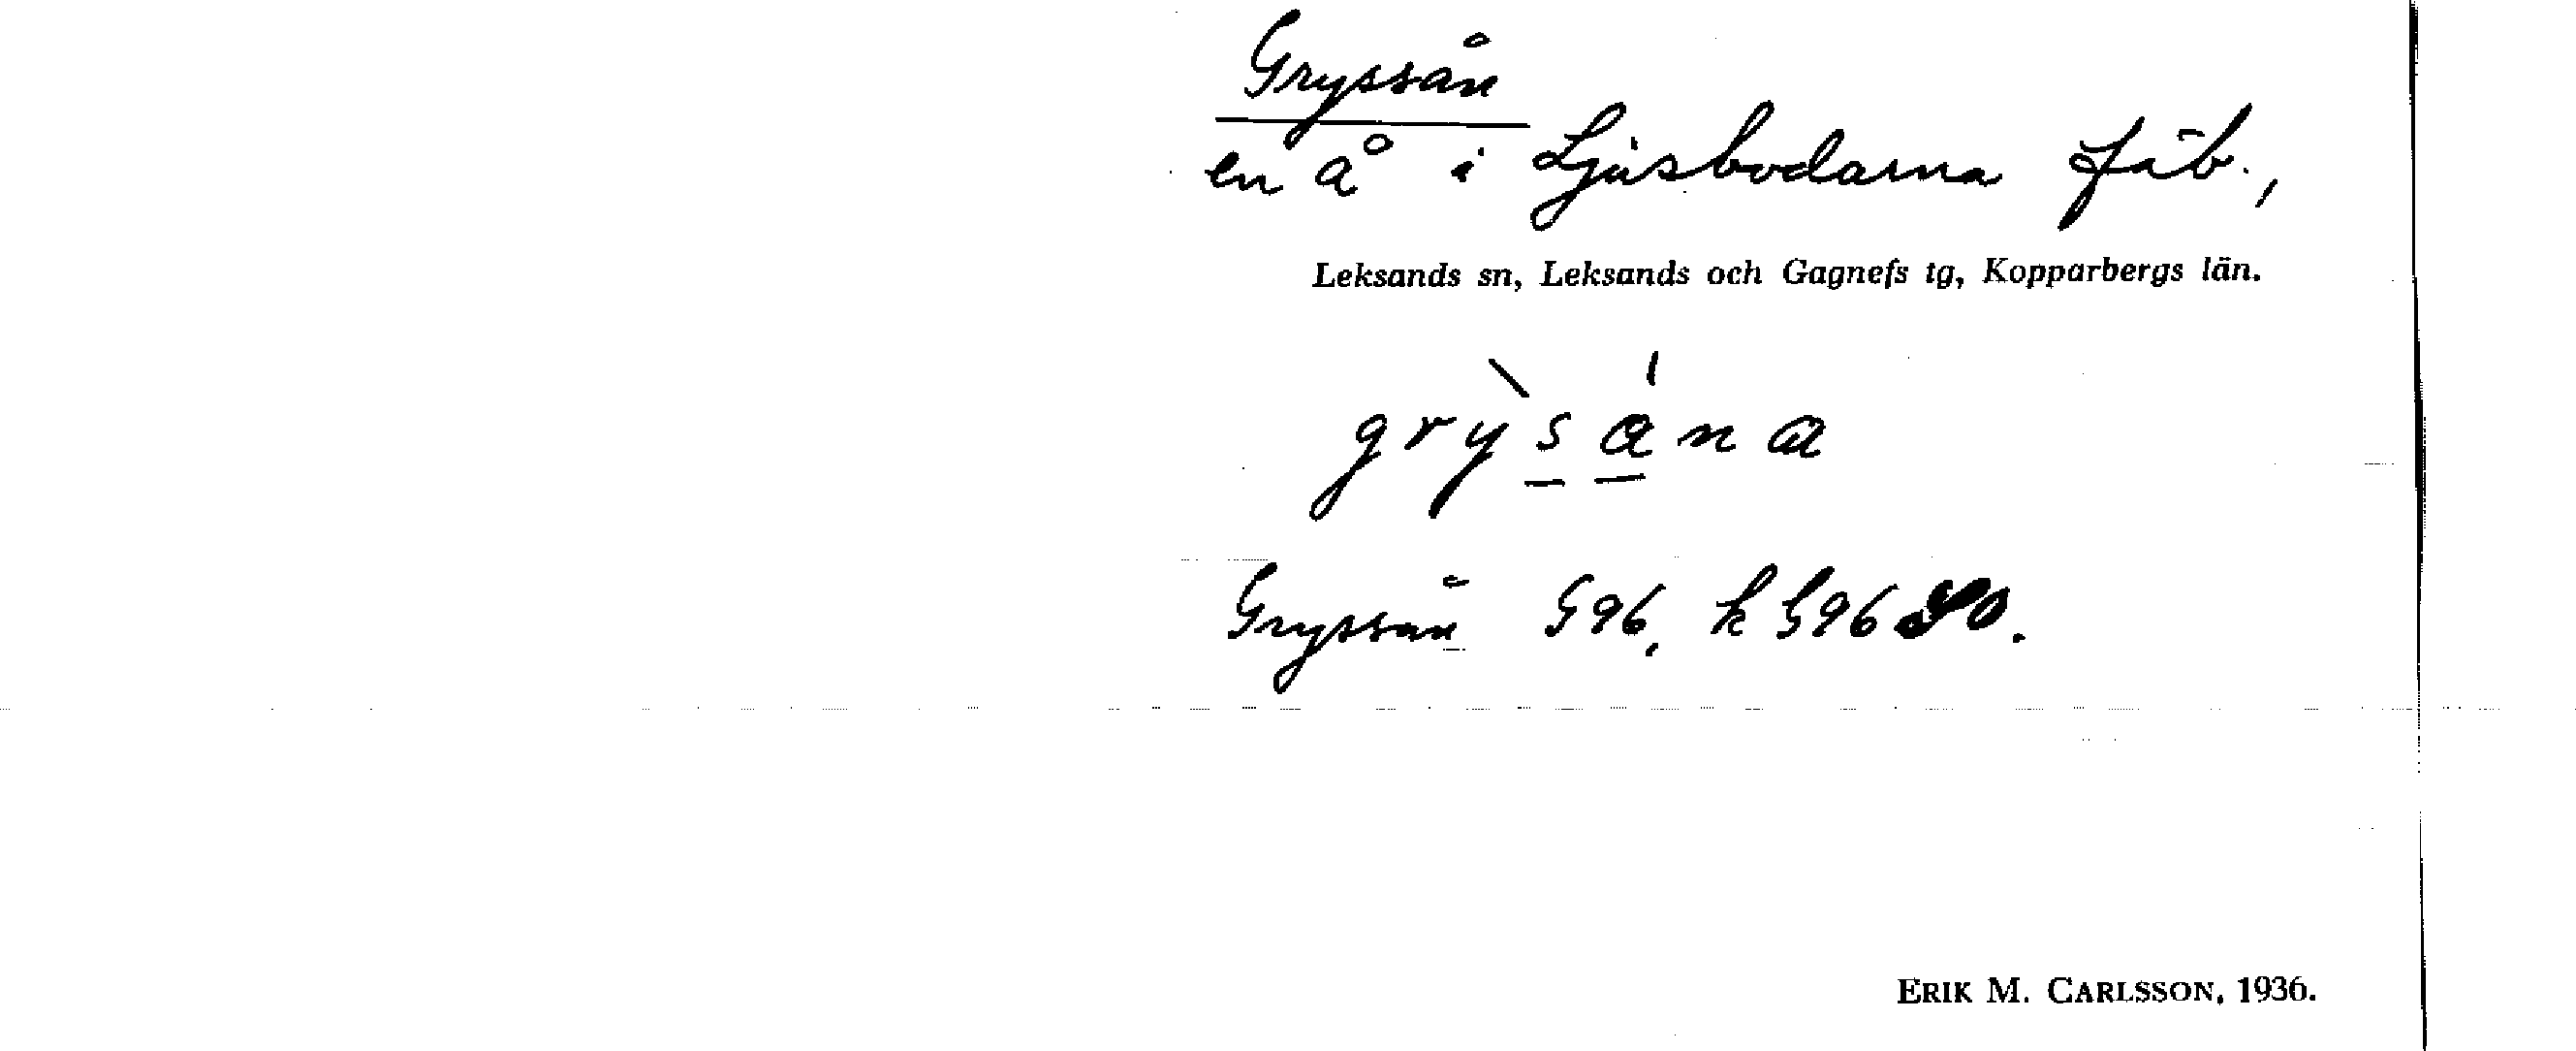 Gryssån
en å i Ljusbodarna fäb.,
Leksands sn, Leksands och Gagnefs tg, Kopparbergs län.
grysɑ́na
Gryssån G96, k G96 SO.
ERIK M. CARLSSON, 1936.